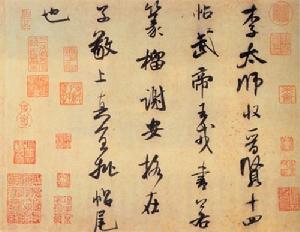 李太師收晉賢十四
帖武帝王戎書若
篆籀謝安格在
子敬上真宜批帖尾
也